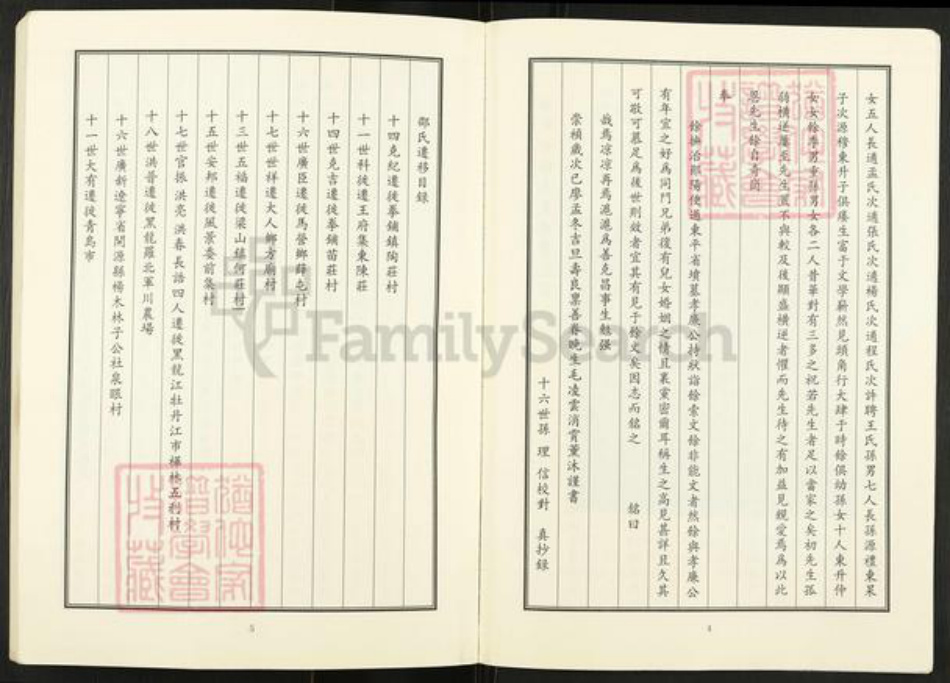 女五人長適孟氏次適張氏次適楊氏次適程氏次許聘王氏孫男七人長孫源禮東果
子次源穆東升子俱庠生富于文學嶄然見頭角行大肆于時餘俱幼孫女十人東升仲
女女餘孫男重孫男女各二人昔華對有三多之祝若先生者足以當家之矣初先生孤
弱橫逆屢至先生置不與較及後顯盛橫逆者懼而先生待之有加益見親愛焉為以此
思先生餘自奇同
奉
餘撫治鄖陽便過東平省墳墓孝廉公持狀詣餘索文餘非能文者然餘與孝廉公
有年宜之好為同門兄弟復有兒女婚姻之情且裏黨密爾耳稱生之高見甚詳且久其
可敬可慕足為後世則效者宜其有見于餘文矣因志而銘之 銘曰
哉焉凉凉再焉滬滬焉善克昌事生勉强
崇禎歲次己廖孟冬吉旦壽良稟善眷晚生毛凌雲消賞薰沐謹書
十六世孫 理 信校對 真抄錄
4
邵氏遷移目錄
十四克紀遷徙拳鋪鎮陶莊村
十一世科徙遷王府集東陳莊
十四世克吉遷徙拳鋪苗莊村
十六世廣臣遷徙馬營鄉薛屯村
十七世世祥遷大人鄉方廟村
十三世五福遷徙梁山鎮何莊村
十五世安邦遷徙風景委前集村
十七世官振 洪亮 洪春 長浩四人遷徙黑龍江牡丹江市樺林五利村
十八世洪普遷徙黑龍羅北軍川農場
十六世廣新遼寧省開源縣楊木林子公社泉眼村
十一世大有遷徙青島市
5
FamilySearch